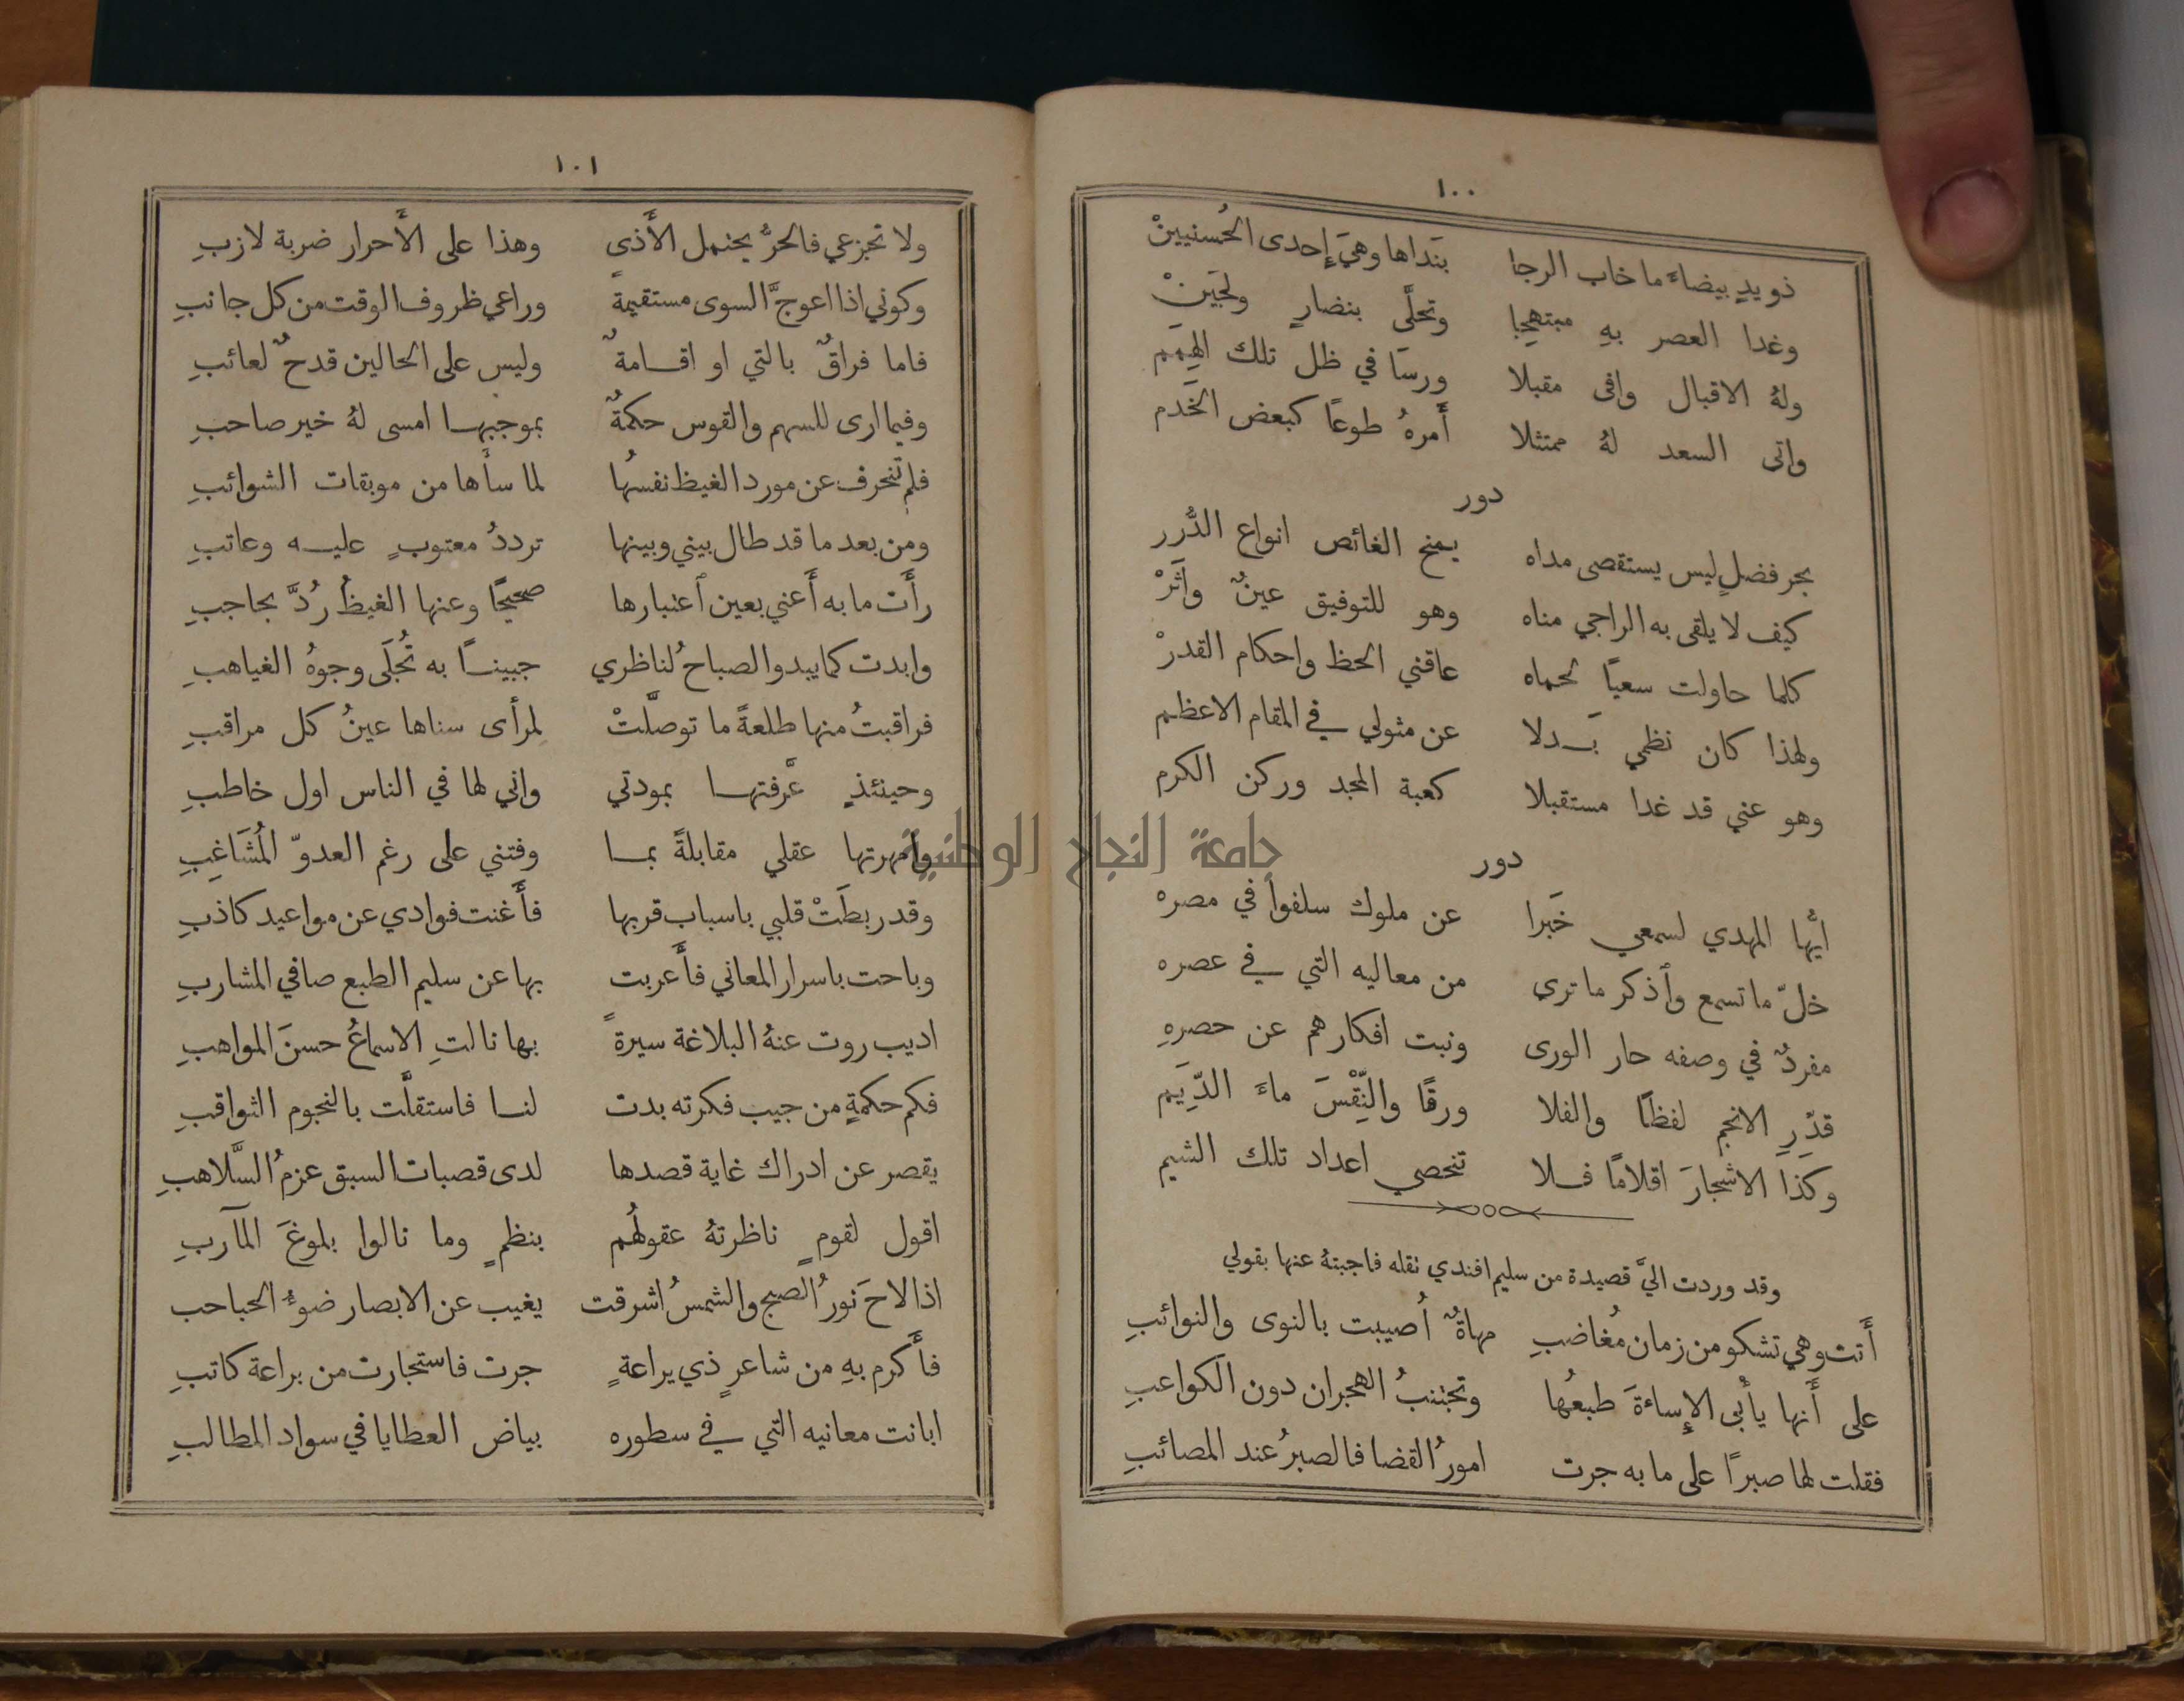 ١٠٠
ذو يدٍ بيضاءَ ما خاب الرجا بنَداها وهيَ إِحدى الحُسنيينْ
وغدا العصر بهِ مبتهجا وتحلَّى بنضارٍ ولجَينْ
ولهُ الاقبال وافى مقبلا ورسا في ظل تلك الهِمَم
واتى السعد لهُ ممتثلا أَمرهُ طوعًا كبعض الخَدَم
دور
بحر فضلٍ ليس يستقصى مداه يمنح الغائص انواع الدُّرر
كيف لا يلقى به الراجي مناه وهو للتوفيق عينٌ وأَثَرْ
كلما حاولت سعيًا لحماه عاقني الحظ واحكام القدرْ
ولهذا كان نظمي بَدلا عن مثولي في المقام الاعظم
وهو عني قد غدا مستقبلا كعبة المجد وركن الكرم
دور
ايُّها المهدي لسمعي خَبَرا عن ملوك سلفوا في مصره
خلّ ما تسمع وأذكر ما ترى من معاليه التي في عصره
مفردٌ في وصفه حار الورى ونبت افكارهم عن حصرهِ
قدِّرِ الانجم لفظًا والفلا ورقًا والنِّقْسَ ماءَ الدِّيَم
وكذا الاشجارَ اقلامًا فلا تنحصي اعداد تلك الشيم
وقد وردت اليَّ قصيدة من سليم افندي نقله فاجبتهُ عنها بقولي
أَتت وهي تشكو من زمان مُغاضبِ مهاةٌ أُصيبت بالنوى والنوائبِ
على أَنها يأْبى الإِساءةَ طبعُها وتجننبُ الهجران دون الكواعبِ
فقلت لها صبرًا على ما به جرت امورُ القضا فالصبرُ عند المصائبِ
١٠١
ولا تجزعي فالحرُّ يحتمل الأَذى وهذا على الأَحرار ضربة لازبِ
وكوني اذا اعوجَّ السوى مستقيمةً وراعي ظروف الوقت من كل جانبِ
فاما فراقٌ بالتي او اقامةٌ وليس على الحالين قدحٌ لعائبِ
وفيما ارى للسهم والقوس حكمةٌ بموجبها امسى لهُ خير صاحبِ
فلم تنحرف عن مورد الغيظ نفسُها لما سأَها من موبقات الشوائبِ
ومن بعد ما قد طال بيني وبينها ترددُ معتوبٍ عليه وعاتبِ
رأَت ما به أَعني بعين أعتبارها صحيحًا وعنها الغيظُ رُدَّ بحاجبِ
وابدت كما يبدو الصباحُ لناظري جبينًا به تُجلَى وجوهُ الغياهبِ
فراقبتُ منها طلعةً ما توصلَّتْ لمرأى سناها عينُ كل مراقبِ
وحينئذٍ عرَّفتها بمودتي واني لها في الناس اول خاطبِ
وامهرتها عقلي مقابلةً بما وفتني على رغم العدوّ المُشَاغِبِ
وقد ربطَتْ قلبي باسباب قربها فأَغنت فوادي عن مواعيد كاذبِ
وباحت باسرار المعاني فأَعربت بها عن سليم الطبع صافي المشاربِ
اديب روت عنهُ البلاغة سيرةً بها نالتِ الاسماعُ حسنَ المواهبِ
فكم حكمةٍ من جيب فكرته بدت لنا فاستقلَّت بالنجوم الثواقبِ
يقصر عن ادراك غاية قصدها لدى قصبات السبق عزمُ السَّلاهبِ
اقول لقومٍ ناظرتهُ عقولُهم بنظمٍ وما نالوا بلوغَ المآربِ
اذا لاحَ نورُ الصبح والشمسُ اشرقت يغيب عن الابصار ضوءُ الحباحب
فأَكرم بهِ من شاعرٍ ذي يراعةٍ جرت فاستجارت من براعة كاتبِ
ابانت معانيه التي في سطوره بياض العطايا في سواد المطالبِ
جامعة النجاح الوطنية